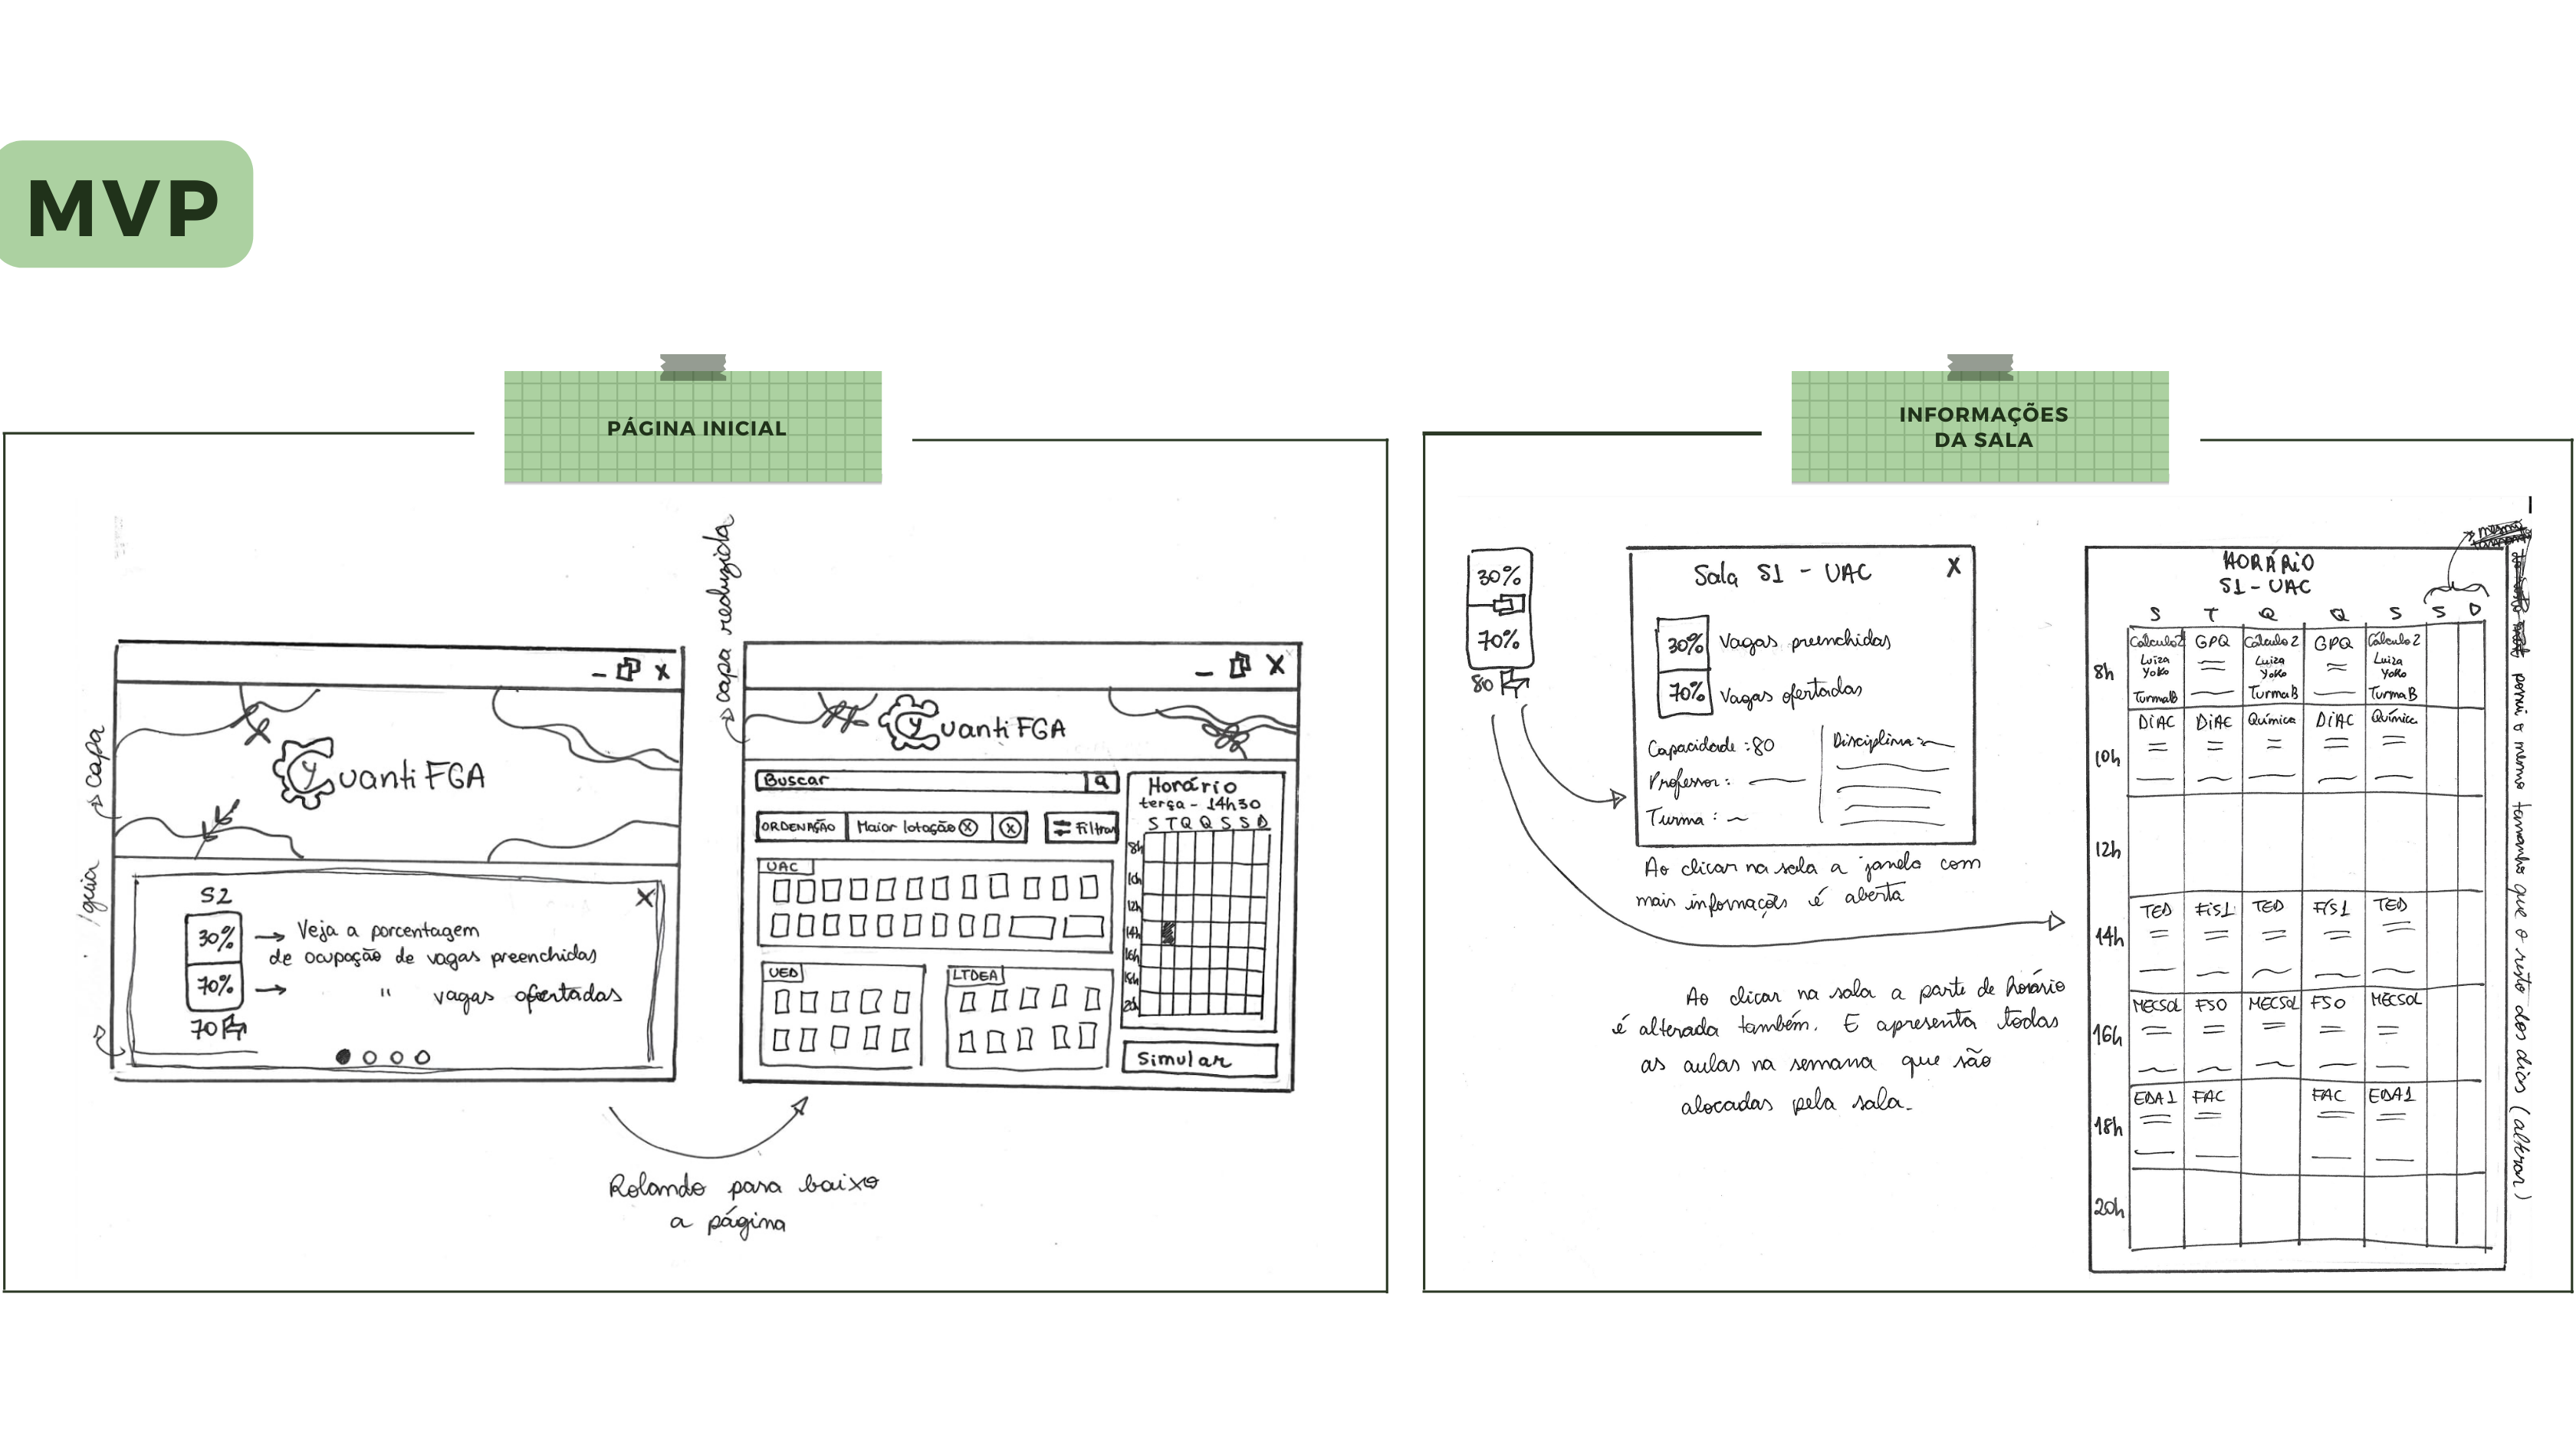 MVP
PÁGINA INICIAL
capa
guia
uanti FGA
S2
X
30% → Veja a porcentagem
de ocupação de vagas preenchidas
70% → " vagas ofertadas
70
Rolando para baixo
a página
capa reduzida
uanti FGA
Buscar
ORDENAÇÃO Maior lotação
Filtrar
UAC
UED
LTDEA
Horário
terça - 14h30
S T Q Q S S D
8h
10h
12h
14h
16h
18h
20h
Simular
INFORMAÇÕES
DA SALA
30%
70%
80
Sala S1 - UAC X
30% Vagas preenchidas
70% Vagas ofertadas
Capacidade : 80
Professor:
Turma :
Disciplina:
Ao clicar na sala a janela com
mais informações é aberta
Ao clicar na sala a parte de horário
é alterada também. E apresenta todas
as aulas na semana que são
alocadas pela sala.
HORÁRIO
S1 - UAC
S T Q Q S S D
8h
Cálculo2 GPQ Cálculo 2 GPQ Cálculo 2
Luiza Luiza Luiza
Yoko Yoko Yoko
TurmaB TurmaB TurmaB
10h
DIAC DIAC Química DIAC Química
12h
14h
TED FIS1 TED FIS1 TED
16h
MECSOL FSO MECSOL FSO MECSOL
18h
EDA1 FAC FAC EDA1
20h
possui o mesmo tamanho que o resto dos dias (alterar)